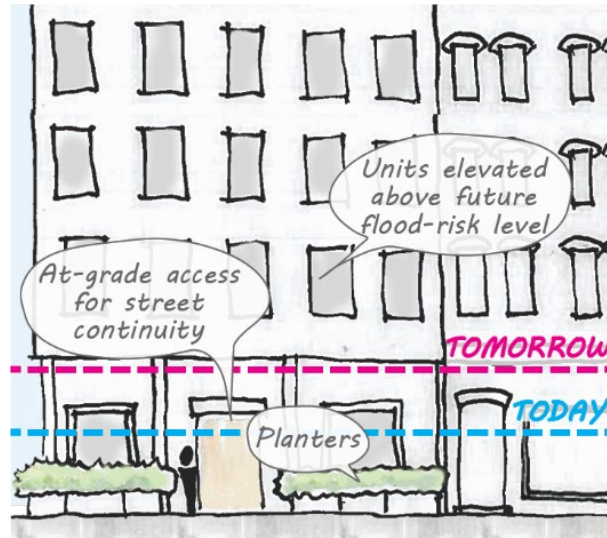 Units elevated
above future
flood-risk level
At-grade access
for street
continuity
TOMORROW
TODAY
Planters